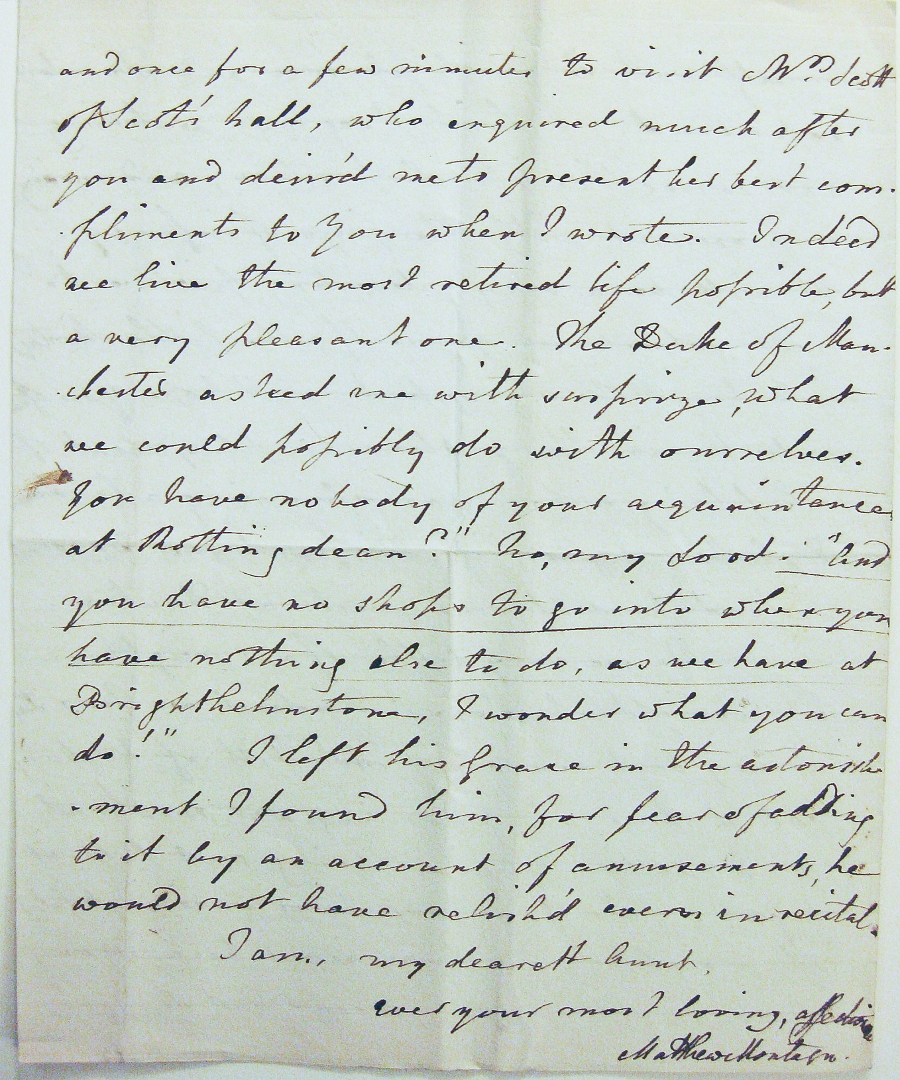 and once for a few minutes to visit Mrs. Scott
of Scot's hall, who enquired much after
you and desir'd me to present her best com-
pliments to You when I wrote. Indeed
we live the most retired life possible, but
a very pleasant one. The Duke of Man-
chester asked me with surprize, what
we could possibly do with ourselves.
You have nobody of your acquaintance
at Rottingdean?" No, my Lord. "And
you have no shops to go into when you
have nothing else to do, as we have at
Brighthelmstone, I wonder what you can
do!" I left his Grace in the astonish
-ment I found him, for fear of adding
to it by an account of amusements, he
would not have relish'd even in recital.
I am, my dearest Aunt,
ever your most loving, affection
Matthew Montagu.